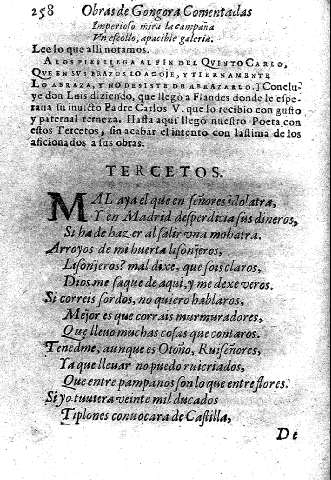 258 Obras de Gongora Comentadas
Imperioso mira la campaña
Vn escollo, apacible galeria.
Lee lo que alli notamos.
AL OS PIES LLEGA AL FIN DEL QVINTO CARLO,
QVE EN SVS BRAZOS LO ACOJE, Y TIERNAMENTE
LO ABRAZA, Y NO DESISTE DE ABRAZARLO.] Conclu-
ye don Luis diziendo, que llegò a Flandes donde le espe-
raua su inuicto Padre Carlos V. que lo recibio con gusto
y paternal terneza. Hasta aqui llegò nuestro Poeta con
estos Tercetos, sin acabar el intento con lastima de los
aficionados a sus obras.
TERCETOS.
MAL aya el que en señores idolatra,
Y en Madrid desperdicia sus dineros,
Si ha de hazer al salir vna mohatra.
Arroyos de mi huerta lisonjeros,
Lisonjeros? mal dixe, que sois claros,
Dios me saque de aqui, y me dexe veros.
Si correis sordos, no quiero hablaros,
Mejor es que corrais murmuradores,
Que lleuo muchas cosas que contaros.
Tenedme, aunque es Otoño, Ruiseñores,
Ya que lleuar no puedo ruicriados,
Que entre pampanos son lo que entre flores.
Si yo tuuiera veinte mil ducados
Tiplones conuocara de Castilla,
De